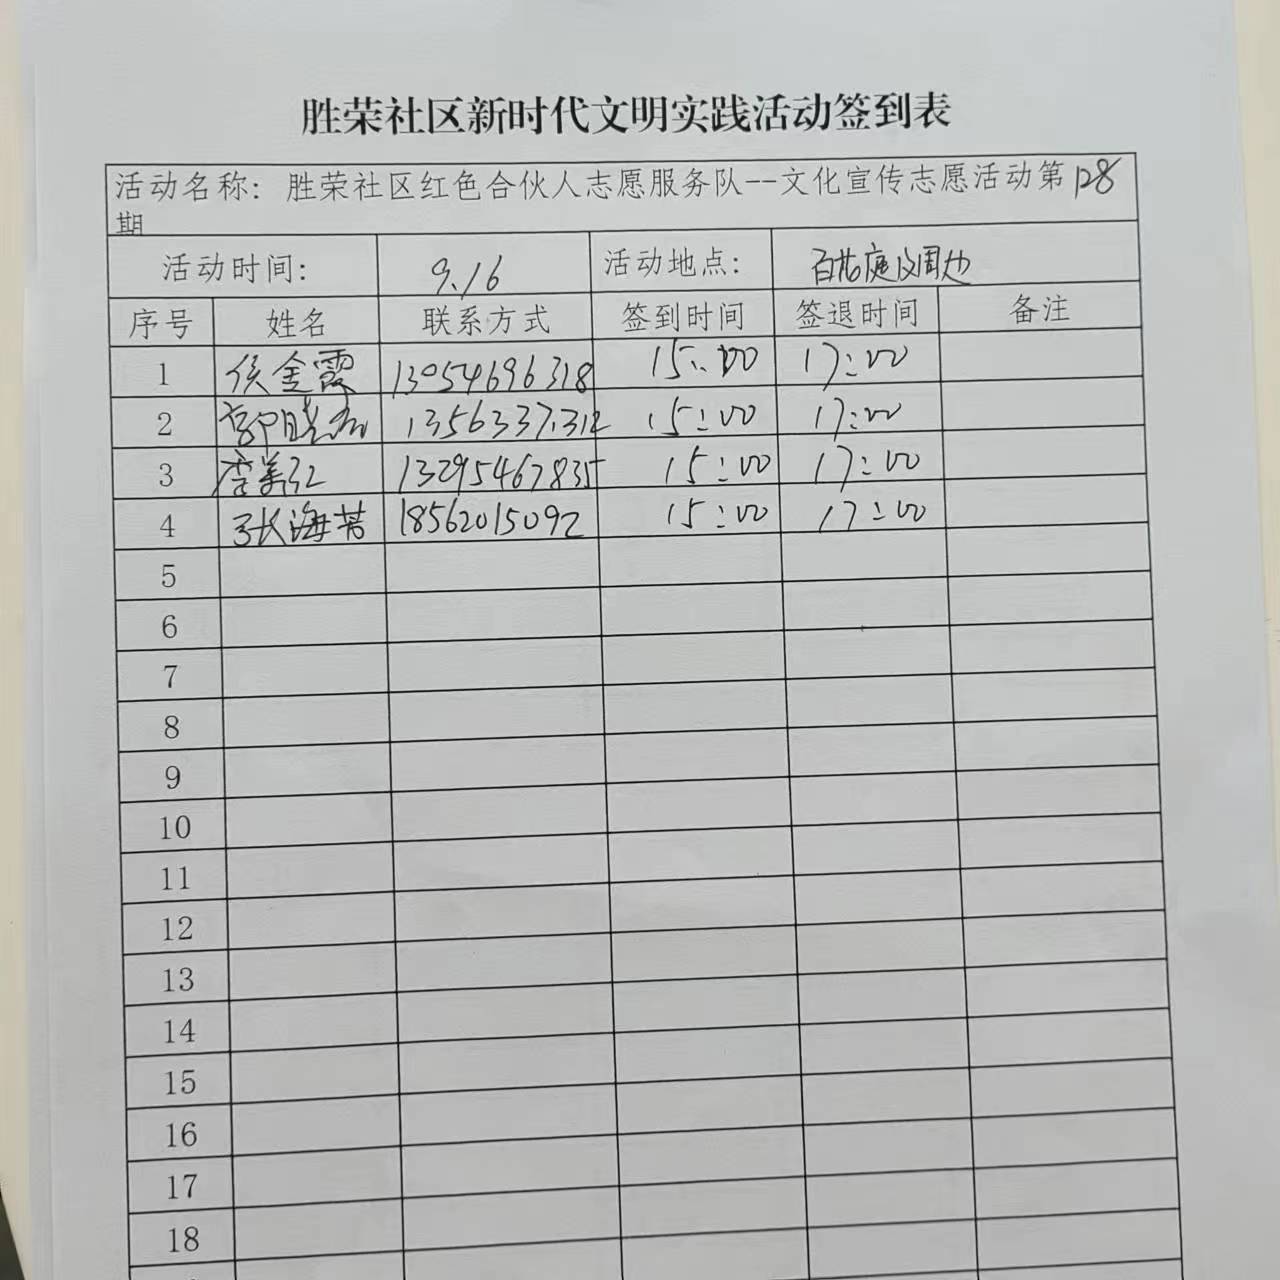 胜荣社区新时代文明实践活动签到表
活动名称：胜荣社区红色合伙人志愿服务队--文化宣传志愿活动第128
期
活动时间： 9.16 活动地点： 百花庭及周边
序号 姓名 联系方式 签到时间 签退时间 备注
1 侯金霞 13054696318 15:00 17:00
2 郭晓 15:00 17:00
3 李美红 13295467835 15:00 17:00
4 张海芳 18562015092 15:00 17:00
5
6
7
8
9
10
11
12
13
14
15
16
17
18